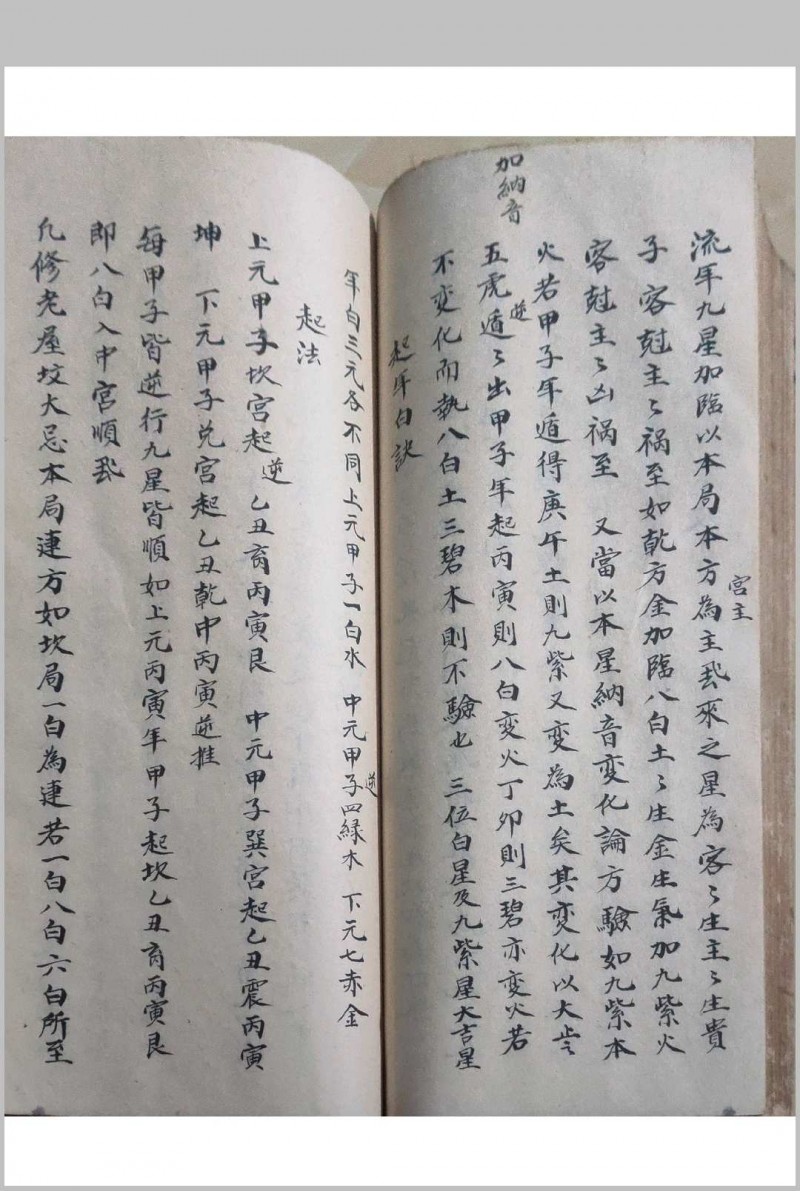 加納音
流年九星加臨以本局本方為主飛來之星為客〻生主〻生貴
宮主
子客尅主〻禍至如乾方金加臨八白土〻生金生氣加九紫火
客尅主〻凶禍至 又當以本星納音變化論方驗如九紫本
火若甲子年遁得庚午土則九紫又变為土矣其变化以大
五虎遁〻出甲子年起丙寅則八白变火丁卯則三碧亦变火若
逆
不变化而執八白土三碧木則不驗也 三位白星及九紫星大吉星
起年白訣
年白三元各不同上元甲子一白水 中元甲子四緑木 下元七赤金
逆
起法
上元甲子坎宫起乙丑离丙寅艮 中元甲子巽宫起乙丑震丙寅
逆
坤 下元甲子兑宫起乙丑乾中丙寅逆推
每甲子皆逆行九星皆順如上元丙寅年甲子起坎乙丑离丙寅艮
即八白入中宫順飛
凡修老屋坟大忌本局連方如坎局一白為連若一白八白六白所至